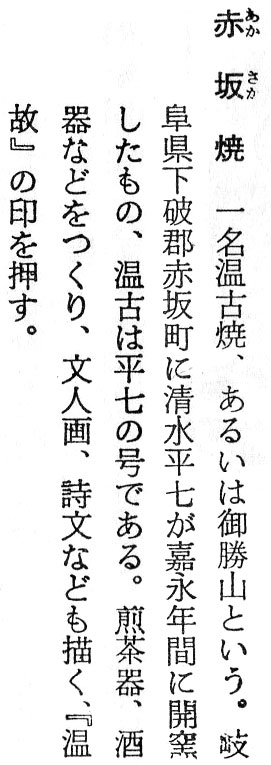 赤坂焼　一名温古焼、あるいは御勝山という。岐
阜県下破郡赤坂町に清水平七が嘉永年間に開窯
したもの、温古は平七の号である。煎茶器、酒
器などをつくり、文人画、詩文なども描く、『温
故』の印を押す。